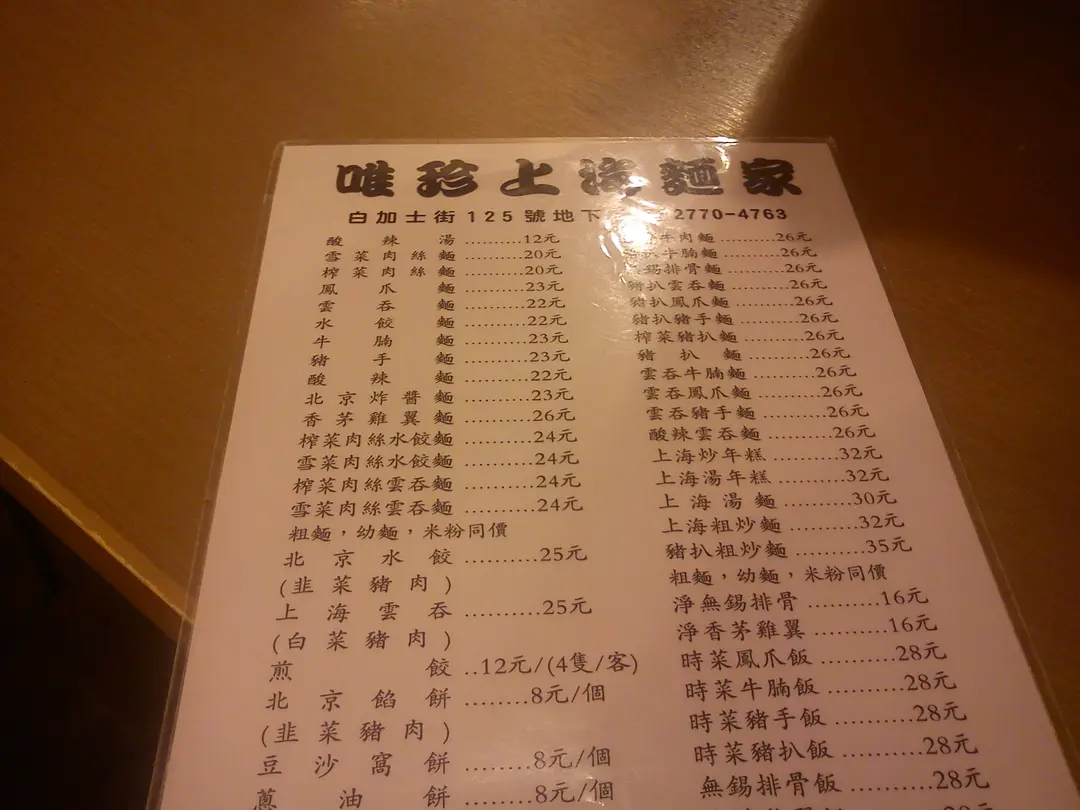 唯珍上海麵家
白加士街125號地下 2770-4763
酸辣湯..........12元
雪菜肉絲麵..........20元
榨菜肉絲麵..........20元
鳳爪麵..........23元
雲吞麵..........22元
水餃麵..........22元
牛腩麵..........23元
豬手麵..........23元
酸辣麵..........22元
北京炸醬麵..........23元
香茅雞翼麵..........26元
榨菜肉絲水餃麵..........24元
雪菜肉絲水餃麵..........24元
榨菜肉絲雲吞麵..........24元
雪菜肉絲雲吞麵..........24元
粗麵，幼麵，米粉同價
北京水餃..........25元
(韭菜豬肉)
上海雲吞..........25元
(白菜豬肉)
煎餃..12元/(4隻/客)
北京餡餅..........8元/個
(韭菜豬肉)
豆沙窩餅..........8元/個
蔥油餅..........8元/個
牛肉麵..........26元
牛腩麵..........26元
無錫排骨麵..........26元
豬扒雲吞麵..........26元
豬扒鳳爪麵..........26元
豬扒豬手麵..........26元
榨菜豬扒麵..........26元
豬扒麵..........26元
雲吞牛腩麵..........26元
雲吞鳳爪麵..........26元
雲吞豬手麵..........26元
酸辣雲吞麵..........26元
上海炒年糕..........32元
上海湯年糕..........32元
上海湯麵..........30元
上海粗炒麵..........32元
豬扒粗炒麵..........35元
粗麵，幼麵，米粉同價
淨無錫排骨..........16元
淨香茅雞翼..........16元
時菜鳳爪飯..........28元
時菜牛腩飯..........28元
時菜豬手飯..........28元
時菜豬扒飯..........28元
無錫排骨飯..........28元